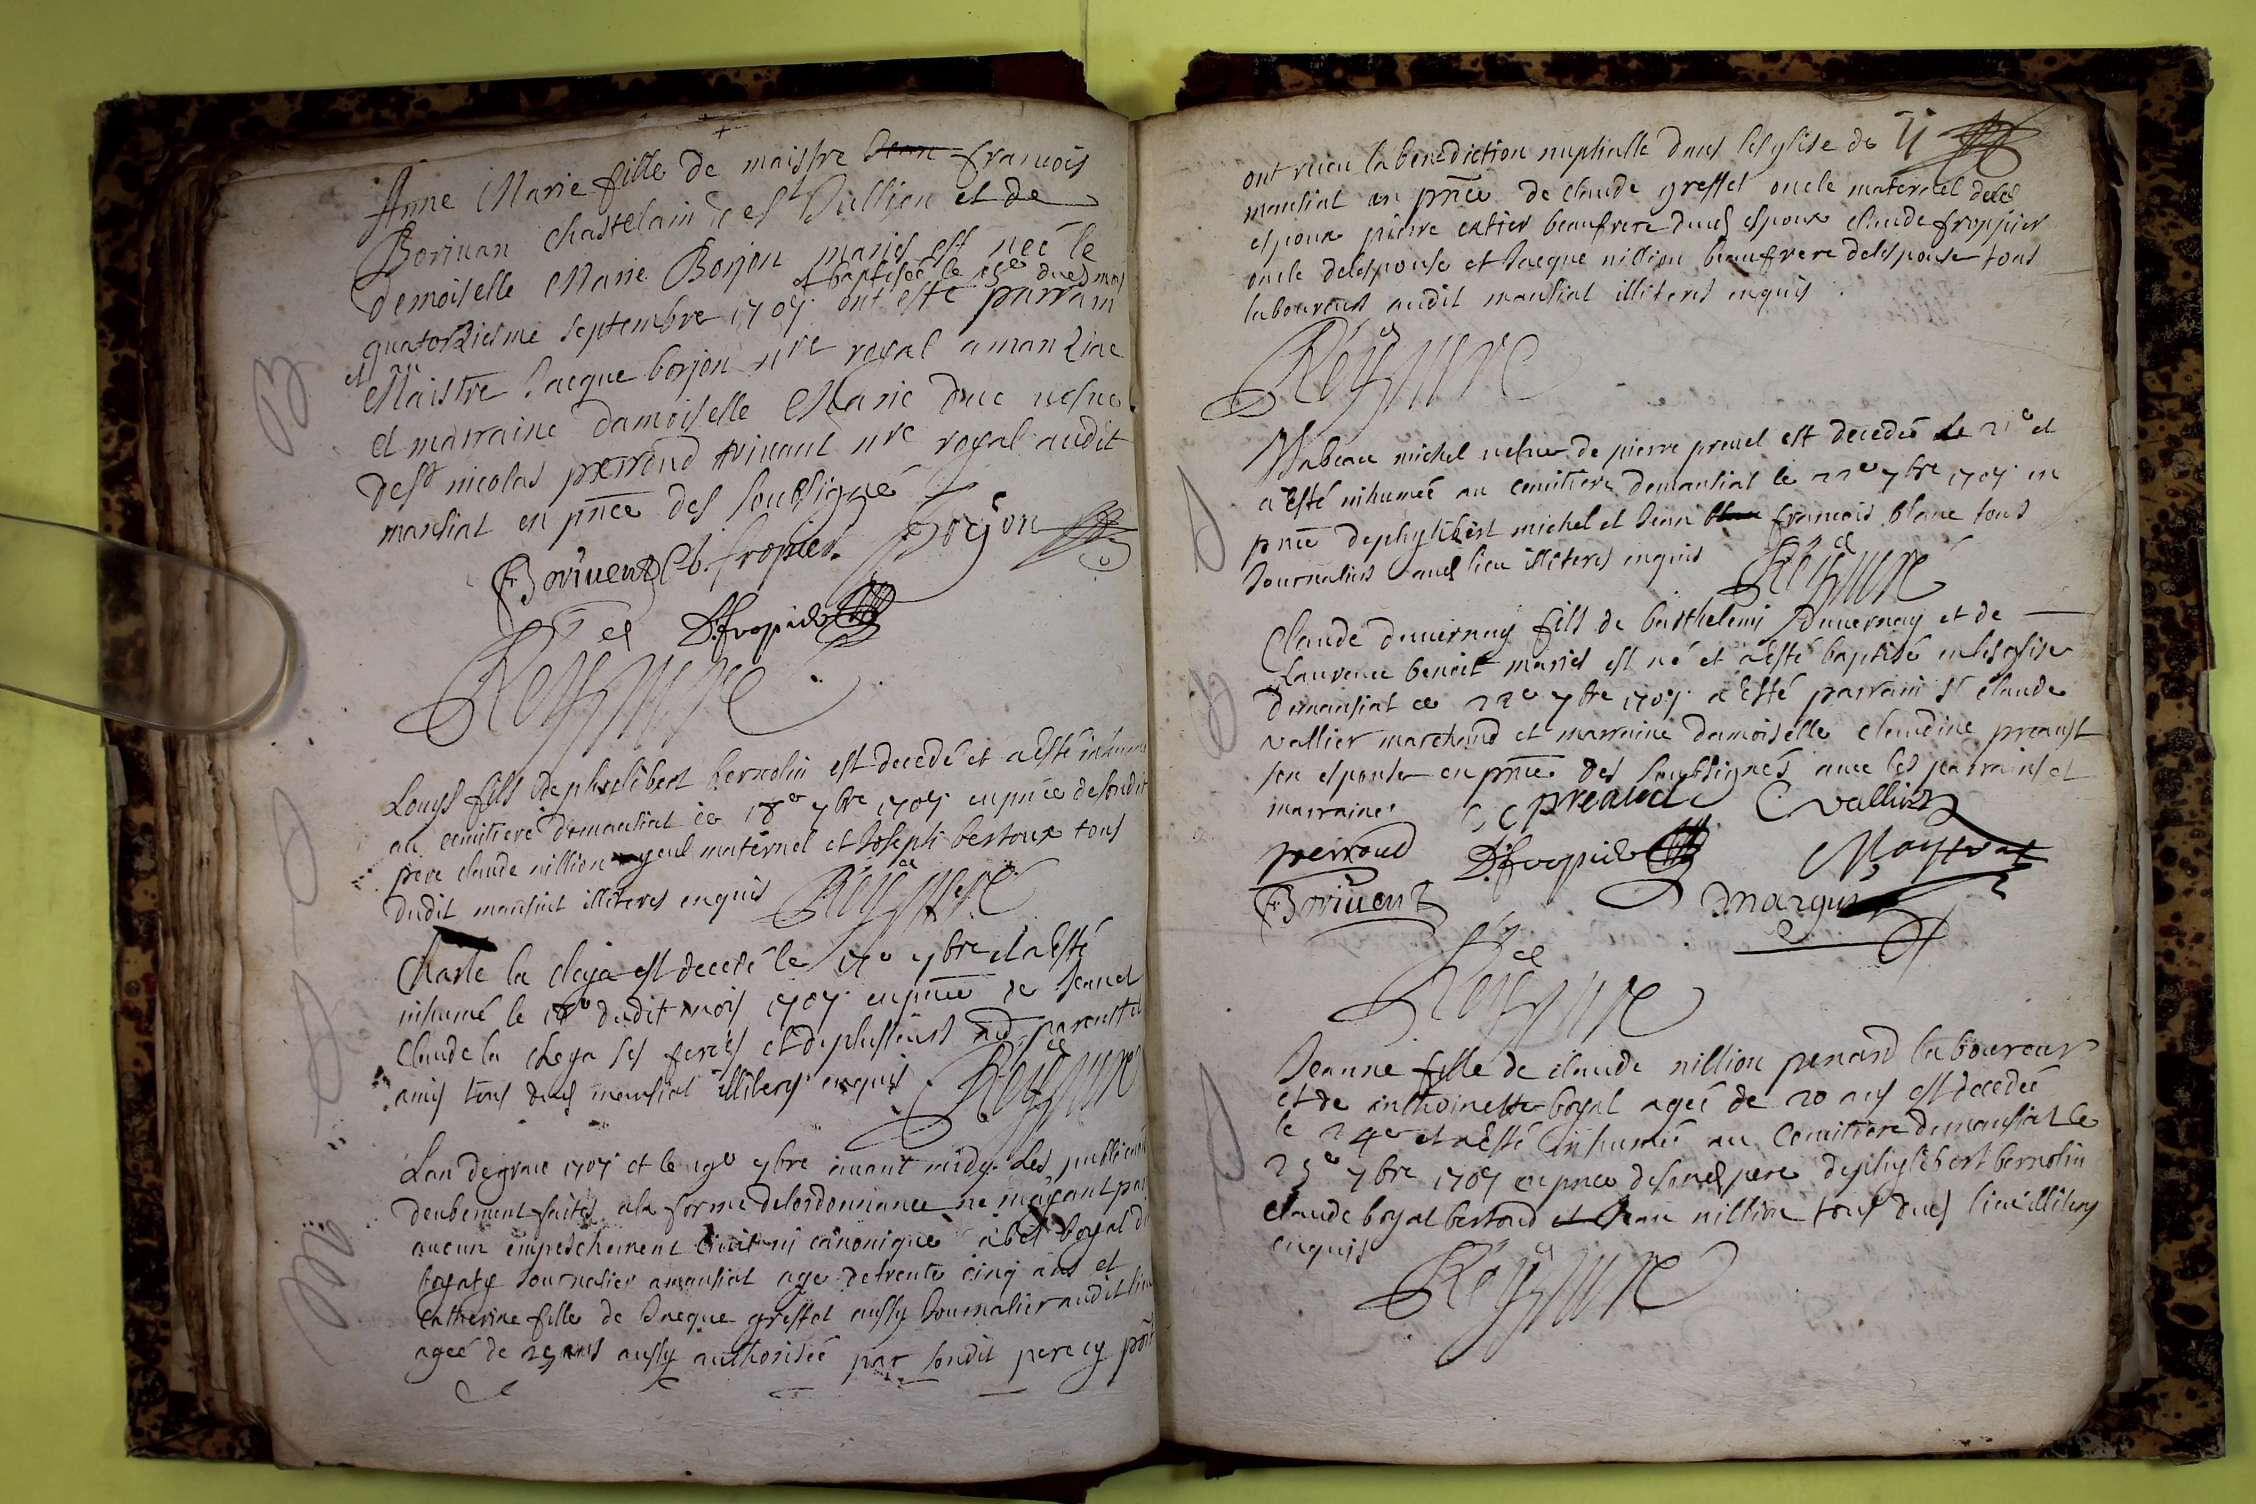 Anne Marie fille de maistre Jean francois
Borjuan chastelain de st Jullien et de
demoiselle Marie Borjon mariés est neé le
et baptiseé le 15e dud mois
quatorziesme septembre 1707 ont este parrain
Maistre Jacque borjon nre royal a manziac
et marraine damoiselle Marie duc vefue
de sr nicolas perroud viuant nre royal audit
marsiat en pnce des soubsigné
B
F Boriuent Cl. fropier Borjon
D. fropier
Reÿ cl vre
Louys fils de philibert bernolin est decedé et a esté inhumé
au cemitiere de marsiat ce 18e 7bre 1707 en pnce de sondit
pere claude nillion ayeul maternel et Joseph bertoux tous
dudit marsiat illiteres enquis Reÿ cl vre
Charle la cleya est decedé le 17e 7bre et a esté
inhumé le 18e dudit mois 1707 en pnce de Jean et
Claude la cleya ses freres et de plusieurs parents et
amis tous dud marsiat illiteres enquis Reÿ cl vre
M
Lan de grace 1707 et le 19e 7bre auant midy les publications
deubement faites a la forme de lordonnance ne mayant paru
aucun empeschement ciuil ny canonique abel boyal
Journalier a marsiat age de trente cinq ans et
Catherine fille de Jacque greffet aussy Journalier audit lieu
ageé de 25 ans aussy authoriseé par sondit pere cy pnt
ont receu la benediction nuptialle dans lesglise de
marsiat en pnce de claude greffet oncle maternel de les
espoux pierre cattier beaufrere dud espoux claude froppier
oncle de lespouse et Jacque nillion beaufrere de lespouse tous
laboureurs audit marsiat illiteres enquis
Reÿ cl vre
Ysabeau michel vefue de pierre preuel est decedeé le 21e et
a esté inhumeé au cemitiere de marsiat le 22e 7bre 1707 en
pnce de phylibert michel et Jean francois blanc tous
Journaliers aud lieu illiteres enquis Reÿ cl vre
Claude duuernay fils de barthelemy Duuernay et de
Laurence benoit mariés est né et a esté baptisé en lesglise
de marsiat ce 22e 7bre 1707 a esté parrain sr claude
vallier marchand et marraine damoiselle claudine preaust
son espouse en pnce des soubsignés auec les parrains et
marraine C preaud C vallier
perroud D. fropier
F Boriuent Marguin
Reÿ cl vre
Jeanne fille de claude nillion penard laboureur
et de anthoinette boyal ageé de 20 ans est decedeé
le 24e et a esté inhumeé au cemitiere de marsiat le
25e 7bre 1707 en pnce de sond pere de phylibert bernolin
claude boyal bertoud et Jean nillion tous dud lieu illiteres
enquis
Reÿ cl vre